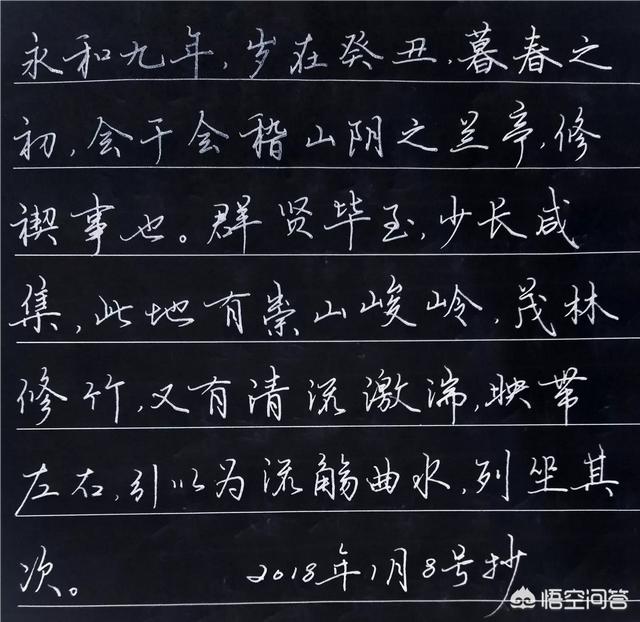 永和九年,岁在癸丑,暮春之
初,会于会稽山阴之兰亭,修
禊事也。群贤毕至,少长咸
集,此地有崇山峻岭,茂林
修竹,又有清流激湍,映带
左右,引以为流觞曲水,列坐其
次。 2018年1月8号抄
悟空问答